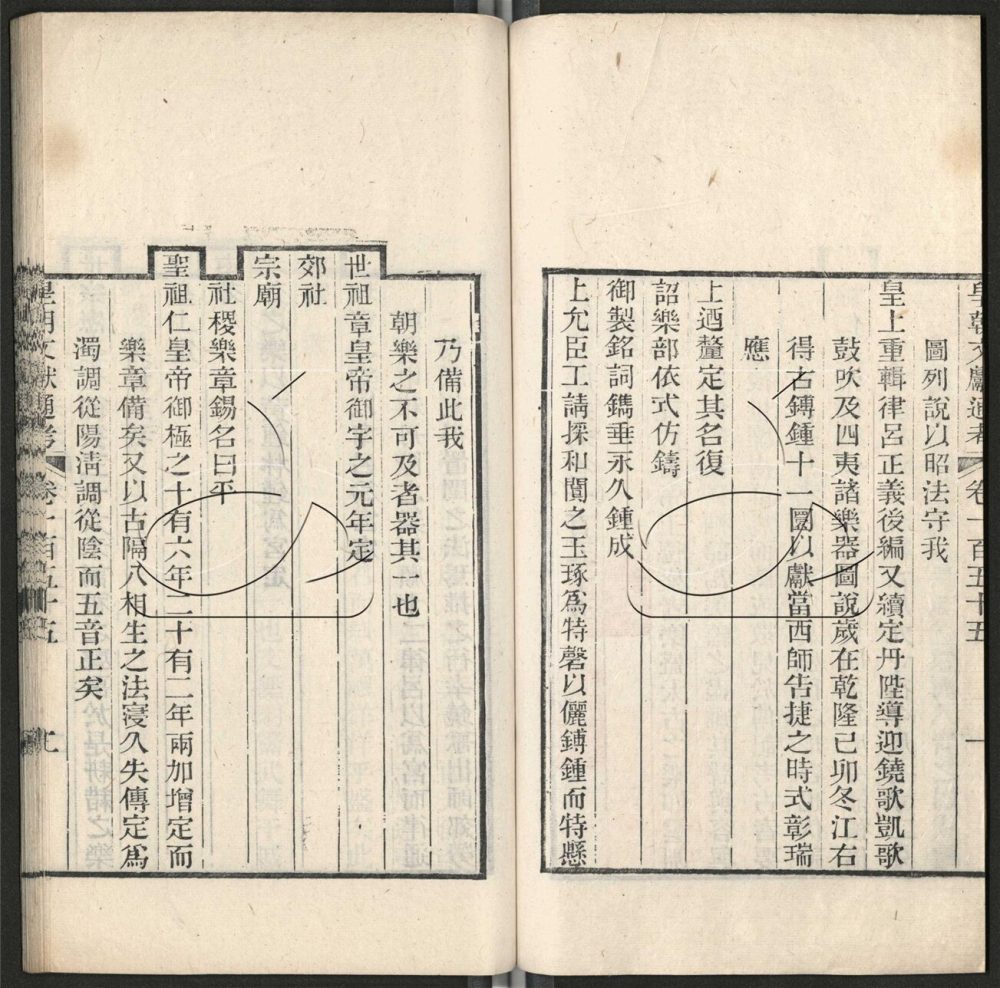 皇朝文獻通考 卷一百五十五 一
圖列說以昭法守我
皇上重輯律呂正義後編又續定丹陛導迎鐃歌凱歌
鼓吹及四夷諸樂器圖說歲在乾隆己卯冬江右
得古鎛鍾十一圜以獻當西師告捷之時式彰瑞
應
上迺釐定其名復
詔樂部依式仿鑄
御製銘詞鐫垂永久鍾成
上允臣工請採和闐之玉琢爲特磬以儷鎛鍾而特懸
乃備此我
朝樂之不可及者器其一也
世祖章皇帝御宇之元年定
郊社
宗廟
社稷樂章錫名曰平
聖祖仁皇帝御極之十有六年二十有二年兩加增定而
樂章備矣又以古隔八相生之法寖久失傳定爲
濁調從陽淸調從陰而五音正矣
皇朝文獻通考 卷一百五十五